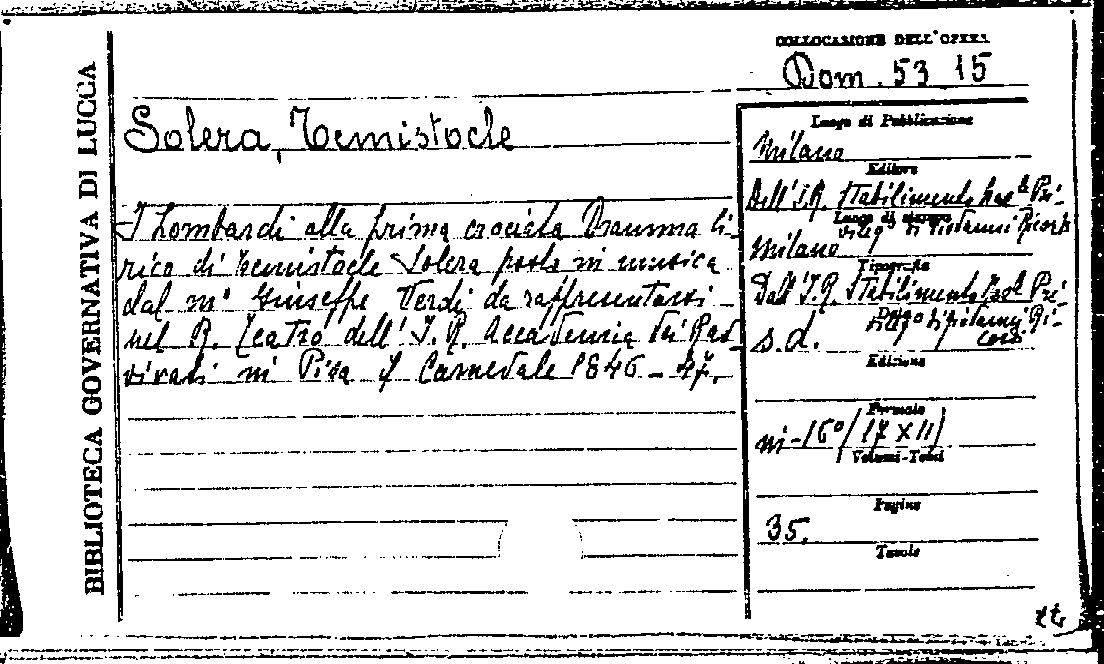 BIBLIOTECA GOVERNATIVA DI LUCCA
COLLOCAZIONE DELL'OPERA
Dom. 53 15
Solera, Temistocle
I Lombardi alla prima crociata Dramma li-
rico di Temistocle Solera posto in musica
dal m° Giuseppe Verdi da rappresentarsi
nel R. Teatro dell' I. R. Accademia dei Rav-
vivati in Pisa il Carnevale 1846-47.
Luogo di Pubblicazione
Milano
Editore
Dell' I.R. Stabilimento Naz. Pri-
vileg. di Giovanni Ricordi
Luogo di stampa
Milano
Tipografia
Dall' I.R. Stabilimento Pri-
vileg° di Giovanni Ri-
cordi
s.d.
Edizione
Formato
in-16°/17 x 11/
Volumi-Tomi
Pagine
35.
Tavole